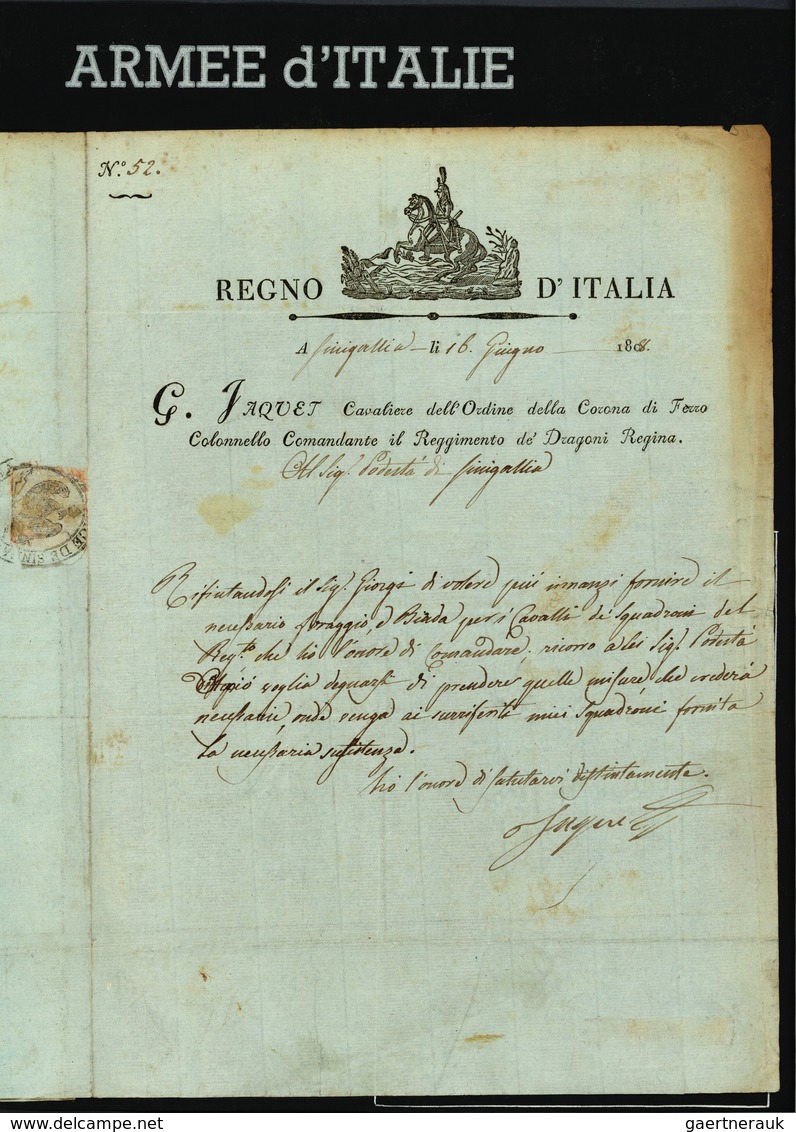 ARMEE d'ITALIE
N.º 52.
REGNO D'ITALIA
A Sinigallia li 16. Giugno 1808.
G. JAQUET Cavaliere dell'Ordine della Corona di Ferro
Colonnello Comandante il Reggimento de' Dragoni Regina.
Al Sig.r Podestà di Sinigallia
Rifiutandosi il Sig.r Giorgi di volere più innanzi fornire il
necessario foraggio, e Biada per i Cavalli de Squadroni del
Reg.to che ho l'onore di Comandare, ricorro a lei Sig.r Podestà
voglia degnarsi di prendere quelle misure che crederà
necessarie, onde venga ai miei Squadroni fornita
la necessaria sussistenza.
Ho l'onore di salutarvi distintamente.
DE SIN
gaertnerauk